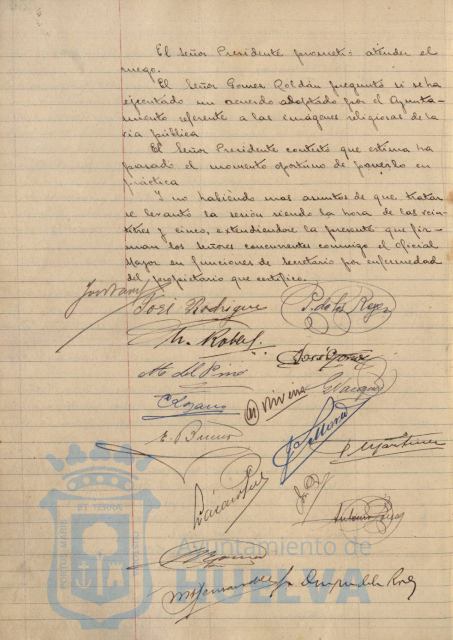 El Señor Presidente prometió atender el
ruego.
El Señor Gomez Roldán preguntó si se ha
ejecutado un acuerdo adoptado por el Ayunta-
miento referente a las imágenes religiosas de la
via pública
El Señor Presidente contestó que estima ha
pasado el momento oportuno de ponerlo en
práctica
Y no habiendo mas asuntos de que tratar
se levantó la sesión siendo la hora de las vein-
titres y cinco, extendiendose la presente que fir-
man los señores concurrentes conmigo el oficial
Mayor en funciones de Secretario por enfermedad
del propietario que certifico.
José Rodriguez
P. de los Reyes
M. del Pino
José Gómez
E. Bueno
J. Martinez
Antonio
PORTUS MARIS ET TERRAE CUSTODIA
Ayuntamiento de
HUELVA